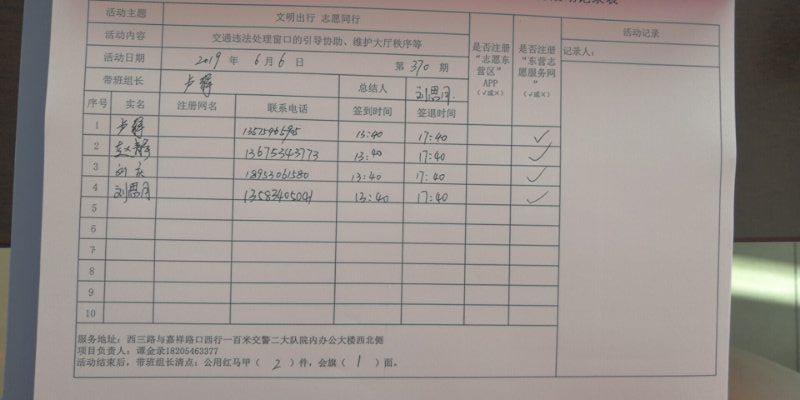 活动主题 文明出行 志愿同行
活动内容 交通违法处理窗口的引导协助、维护大厅秩序等
活动日期 2019 年 6 月 6 日 第 370 期
带班组长 总结人 刘思同
是否注册“志愿东营区”APP(√或×)
是否注册“东营志愿服务网”(√或×)
活动记录
记录人:
序号 实名 注册网名 联系电话 签到时间 签退时间
1 13:40 17:40 ✓
2 赵静 13675343773 13:40 17:40 ✓
3 刘庆 18953061580 13:40 17:40 ✓
4 刘思同 13:40 17:40 ✓
5
6
7
8
9
10
服务地址:西三路与嘉祥路口西行一百米交警二大队院内办公大楼西北侧
项目负责人:谭金录18205463377
活动结束后,带班组长清点:公用红马甲(2)件,会旗(1)面。